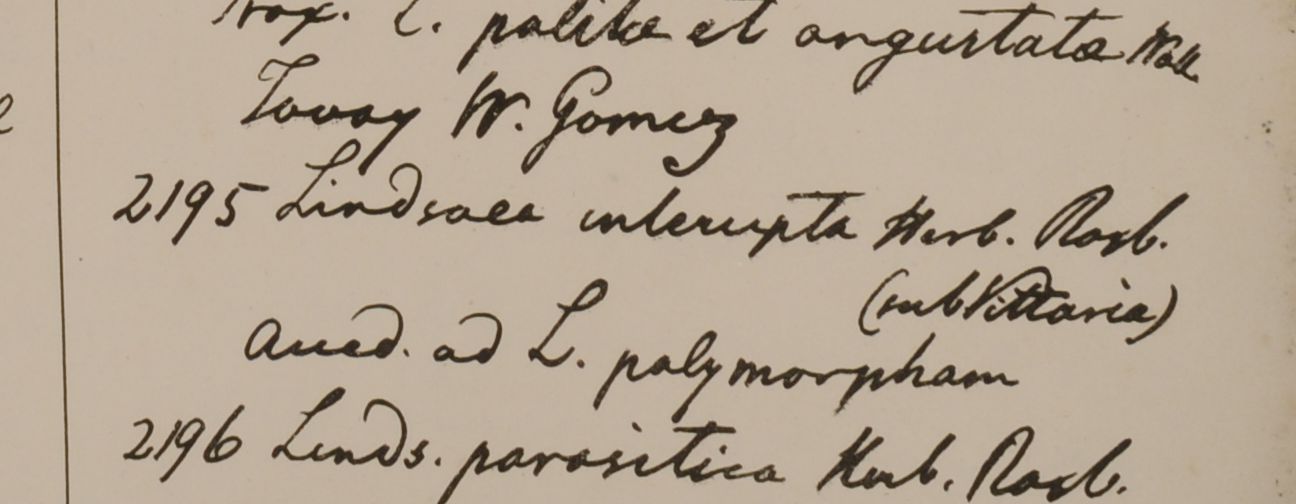 Prox. L. politæ et angustatæ Wall
Tovoy W. Gomez
2195 Lindsaea interupta Herb. Roxb.
(sub Vittaria)
Acced. ad L. polymorpham
2196 Linds. parasitica Herb. Roxb.